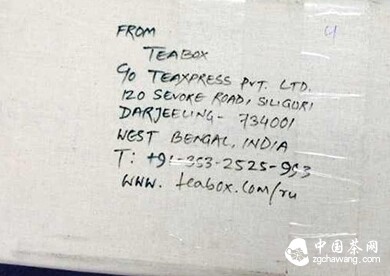 FROM
TEABOX
C/O TEAXPRESS PVT. LTD.
120 SEVOKE ROAD, SILIGURI
DARJEELING - 734001
WEST BENGAL, INDIA
T: +91-353-2525-953
WWW. teabox.com/ru
中国茶网
zgchawang.com